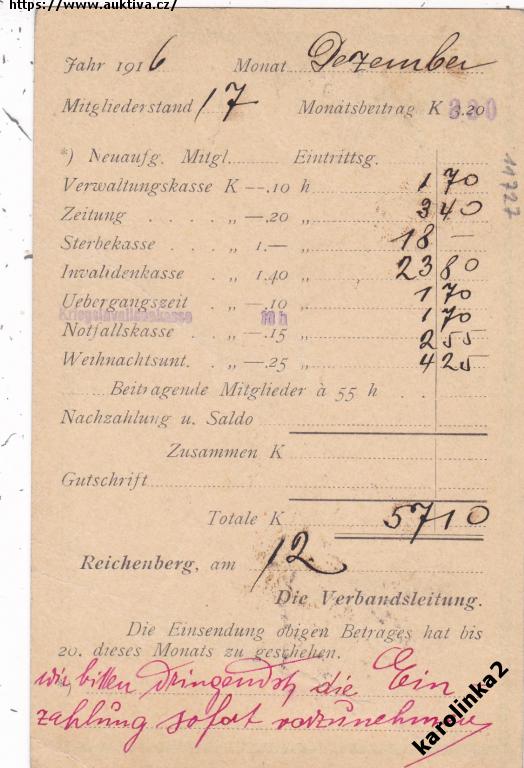 https://www.auktiva.cz/
Jahr 1916 Monat Dezember
Mitgliederstand 17 Monatsbeitrag K 3.20 3 30
11727
*) Neuaufg. Mitgl. Eintrittsg.
Verwaltungskasse K —.10 h 1 70
Zeitung . . . . . „ —.20 „ 3 40
Sterbekasse . . . „ 1.— „ 18 -
Invalidenkasse . „ 1.40 „ 23 80
Uebergangszeit . „ —.10 „ 1 70
Kriegsinvalidenkasse 10 h 1 70
Notfallskasse . . „ —.15 „ 2 55
Weihnachtsunt. . „ —.25 „ 4 25
Beitragende Mitglieder à 55 h
Nachzahlung u. Saldo
Zusammen K
Gutschrift
Totale K 57 10
Reichenberg, am 12.
Die Verbandsleitung.
Die Einsendung obigen Betrages hat bis
20. dieses Monats zu geschehen.
*) wir bitten dringendst, die Ein
zahlung sofort vorzunehmen
karolinka2